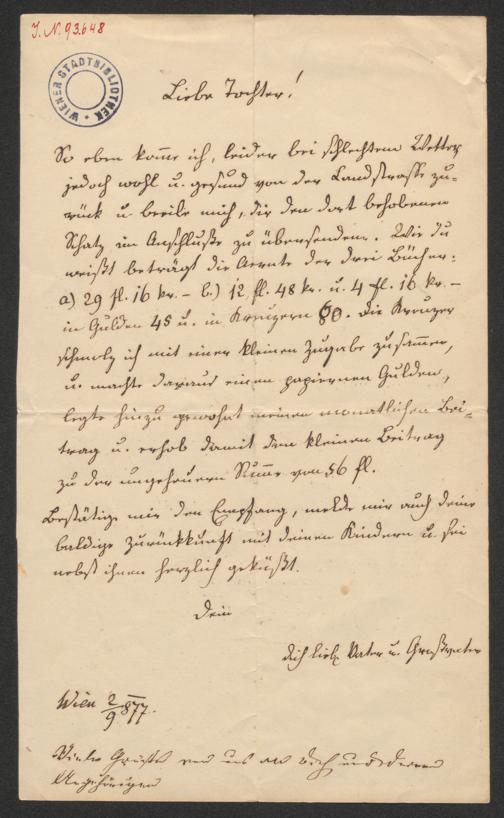 J. N. 93.648
WIENER STADTBIBLIOTHEK
Liebe Tochter!
So eben kom̄e ich, leider bei schlechtem Wetter,
jedoch wohl u. gesund von der Landstrasse zu-
rück u. beeile mich, dir den dort behobenen
Schatz im Anschluße zu übersenden. Wie du
weißt beträgt die Aernte der drei Bücher:
a) 29 fl. 16 kr. – b.) 12 fl. 48 kr. u. 4 fl. 16 kr. –
in Gulden 45 u. in Kreuzern 80. Die Kreuzer
schmolz ich mit einer kleinen Zugabe zusam̄en,
u. machte daraus einen papiernen Gulden,
legte hinzu gewohnt meinen monatlichen Bei-
trag u. erhob damit den kleinen Beitrag
zu der ungeheuern Sum̄e von 56 fl.
Bestätige mir den Empfang, melde mir auch deine
baldige Zurückkunft mit deinen Kindern u. sei
nebst ihnen herzlich geküßt.
Dein
dich lieb. Vater u. Großvater
Wien 2/9 877.
Viele Grüße von uns an dich und deren
Angehörigen